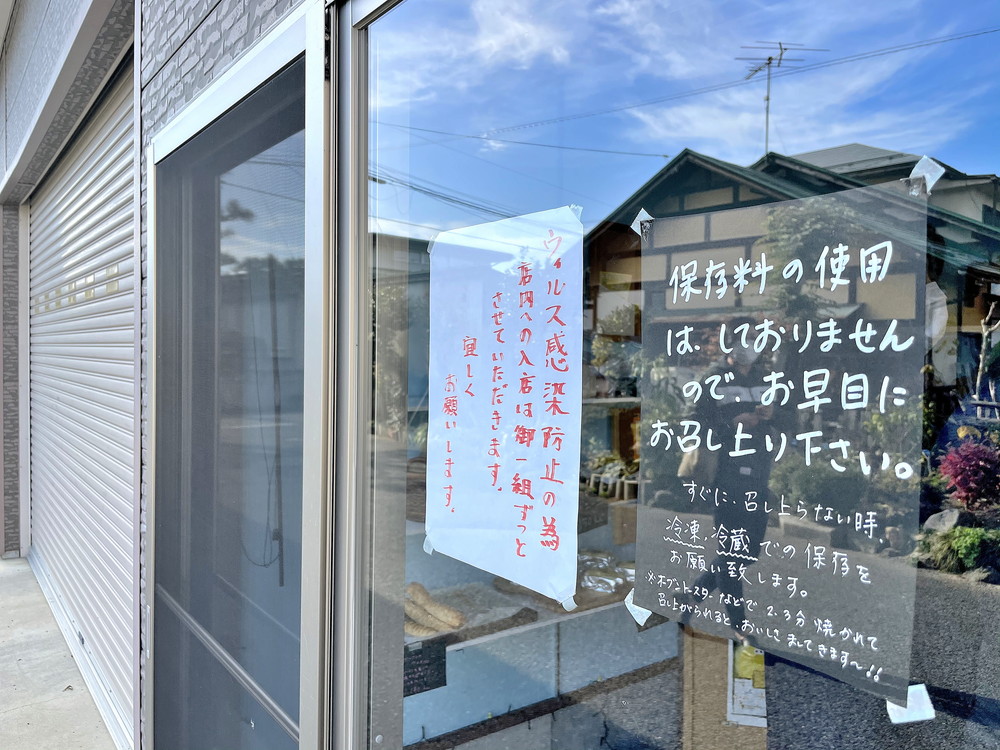 ウィルス感染防止の為
店内への入店は御一組ずつと
させていただきます。
宜しく
お願いします。
保存料の使用
は、しておりません
ので、お早目に
お召し上り下さい。
すぐに、召し上らない時、
冷凍、冷蔵での保存を
お願い致します。
※オーブントースターなどで2.3分焼かれて
召し上がられると、おいしさましてきます〜!!